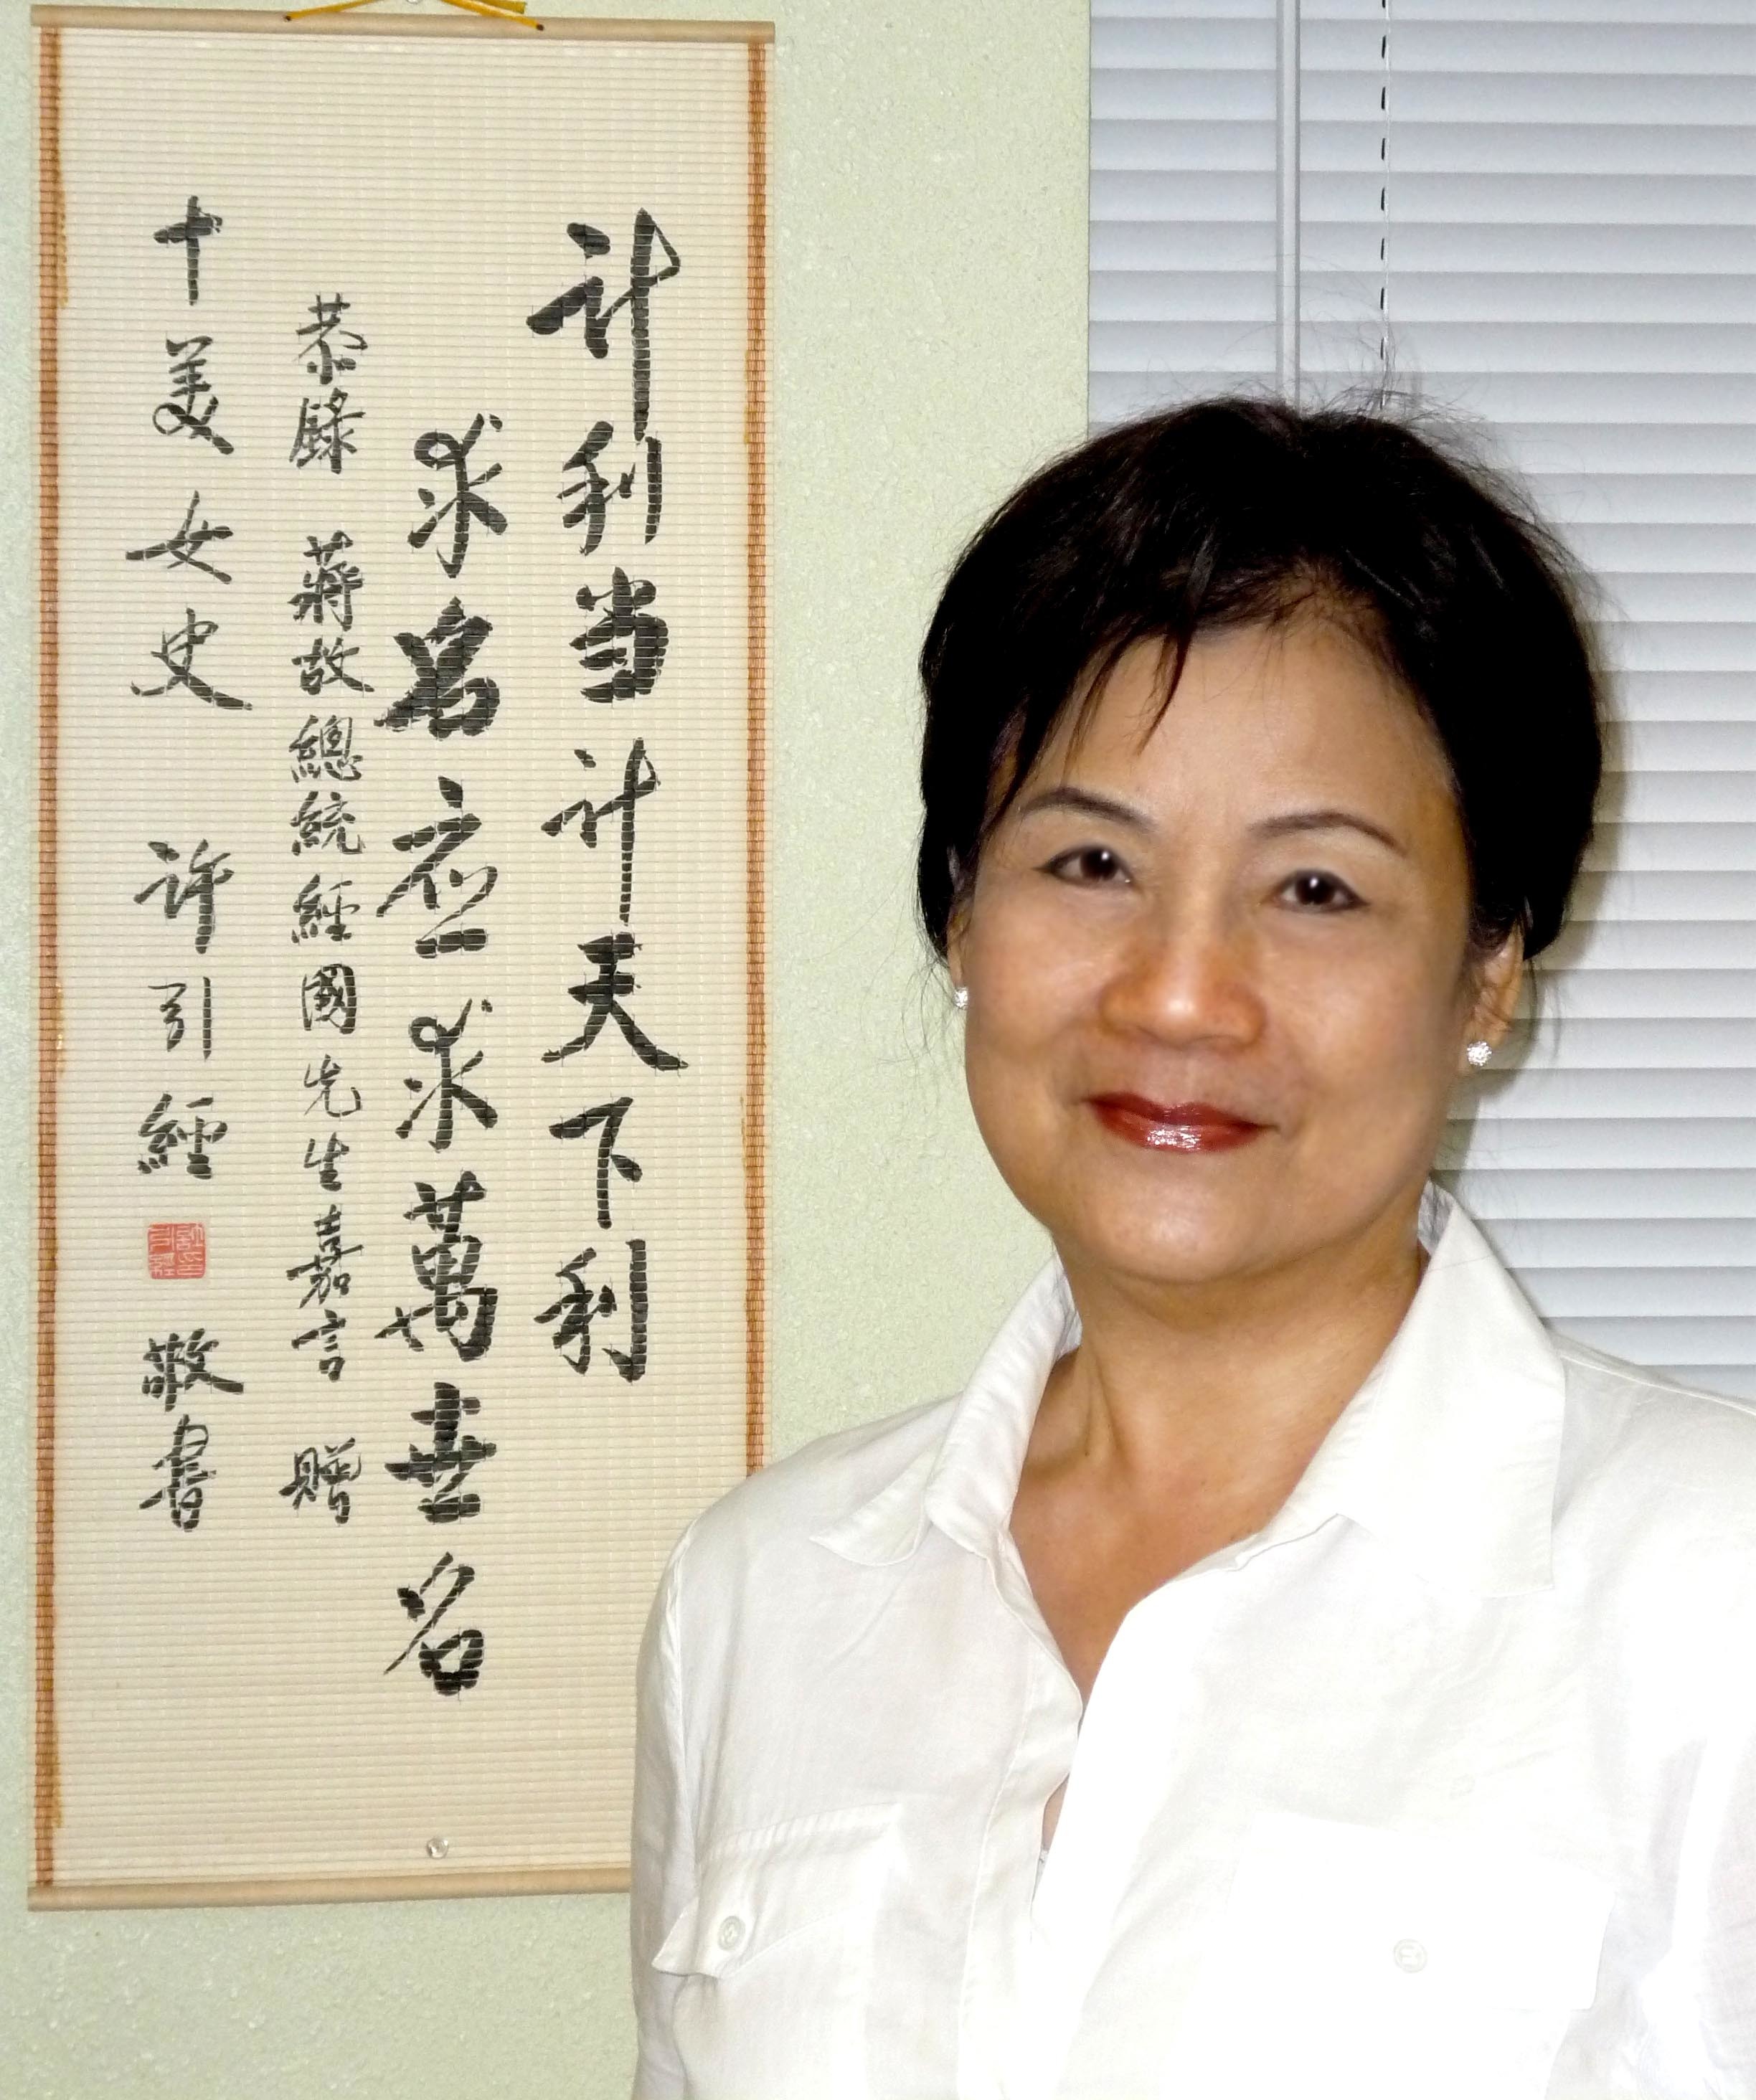 計利当計天下利
求名应求萬世名
恭錄 蔣故總統經國先生嘉言 贈
十美女史 許引經 敬書